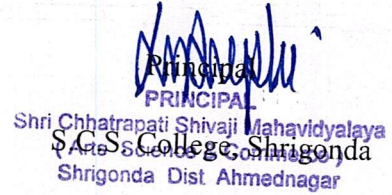 Principal
PRINCIPAL
Shri Chhatrapati Shivaji Mahavidyalaya
S.C.S. College, Shrigonda
(Arts Science & Commerce)
Shrigonda Dist Ahmednagar